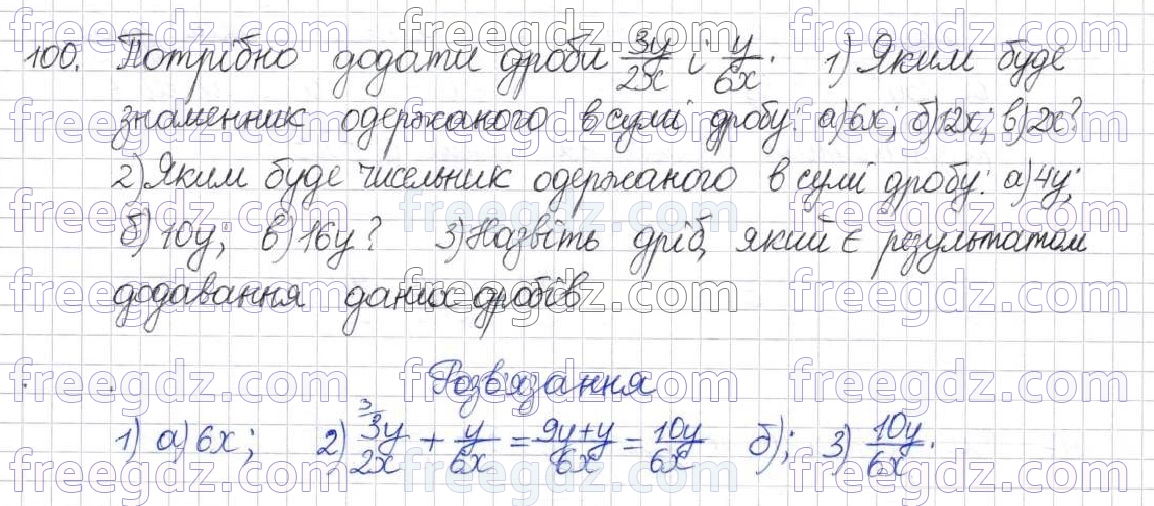 100. Потрібно додати дроби 3y/2x і y/6x. 1) Яким буде
знаменник одержаного в сумі дробу: а) 6x; б) 12x; в) 2x?
2) Яким буде чисельник одержаного в сумі дробу: а) 4y;
б) 10y; в) 16y? 3) Назвіть дріб, який є результатом
додавання даних дробів.
Розв'язання
1) а) 6x; 2) 3y/2x + y/6x = 9y+y/6x = 10y/6x б); 3) 10y/6x.